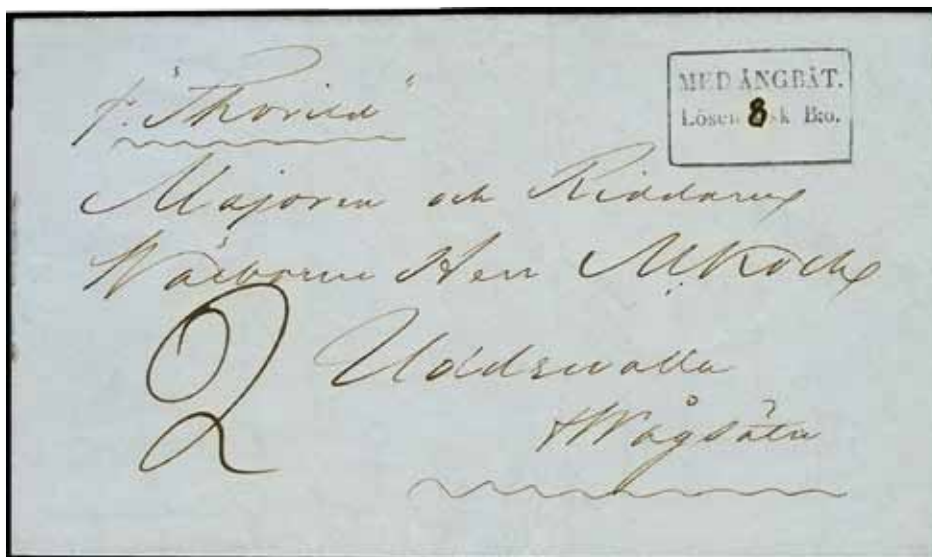 MED ÅNGBÅT.
Lösen 8 sk B:o.
p. "Thorild"
Majoren och Riddaren
Wälborne Herr M. Koch
2
Uddewalla
Wågsäter